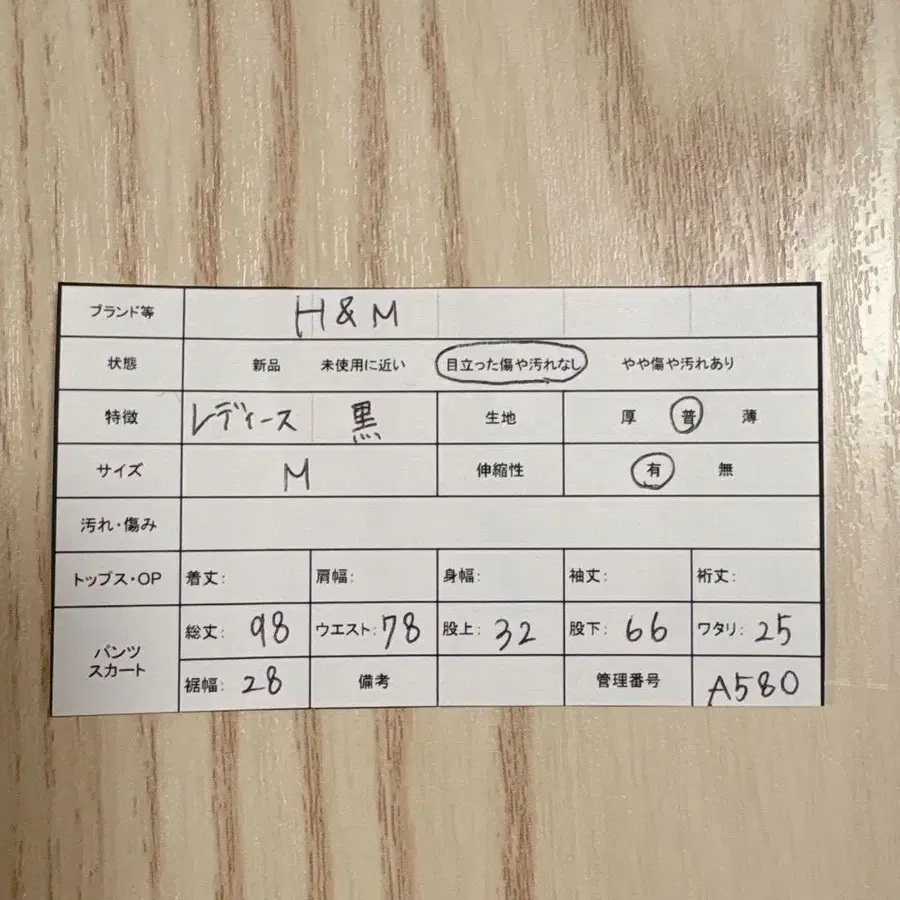 ブランド等 H&M
状態 新品 未使用に近い 目立った傷や汚れなし やや傷や汚れあり
特徴 レディース 黒 生地 厚 普 薄
サイズ M 伸縮性 有 無
汚れ・傷み
トップス・OP 着丈: 肩幅: 身幅: 袖丈: 裄丈:
パンツ スカート 総丈: 98 ウエスト: 78 股上: 32 股下: 66 ワタリ: 25
裾幅: 28 備考 管理番号 A580